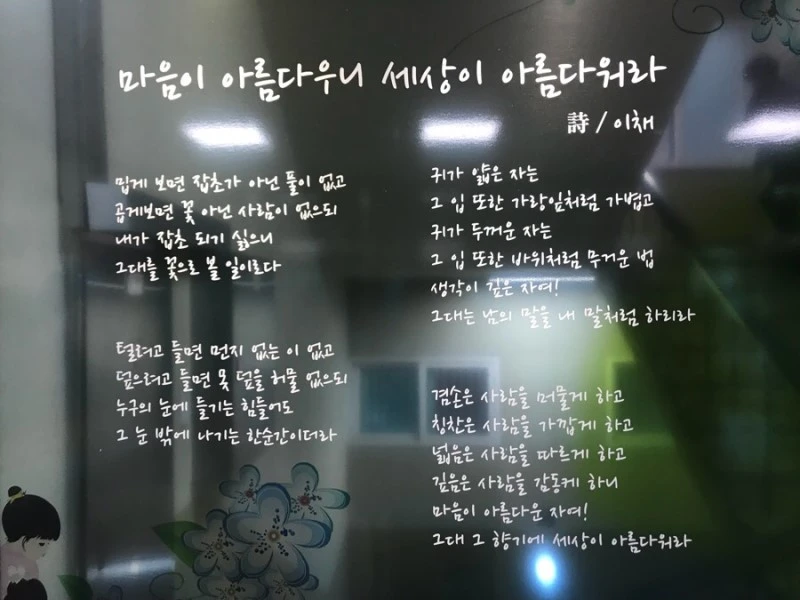 마음이 아름다우니 세상이 아름다워라
詩 / 이채
밉게 보면 잡초가 아닌 풀이 없고
곱게보면 꽃 아닌 사람이 없으되
내가 잡초 되기 싫으니
그대를 꽃으로 볼 일이로다
털려고 들면 먼지 없는 이 없고
덮으려고 들면 못 덮을 허물 없으되
누구의 눈에 들기는 힘들어도
그 눈 밖에 나기는 한순간이더라
귀가 얇은 자는
그 입 또한 가랑잎처럼 가볍고
귀가 두꺼운 자는
그 입 또한 바위처럼 무거운 법
생각이 깊은 자여!
그대는 남의 말을 내 말처럼 하리라
겸손은 사람을 머물게 하고
칭찬은 사람을 가깝게 하고
넓음은 사람을 따르게 하고
깊음은 사람을 감동케 하니
마음이 아름다운 자여!
그대 그 향기에 세상이 아름다워라